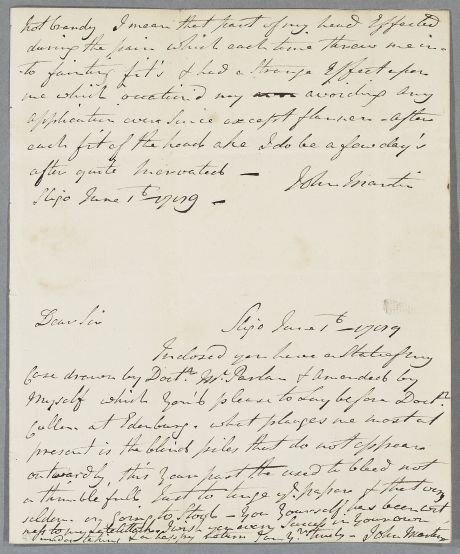 hot brandy I mean that part of my head Effected
during the pain which each time threw me in-
to fainting fit's & had a Strange Effect upon
me which ocation'd my avoiding any
application ever since except flannen - after
each fit of the head ake I do be a few day's
after quite Enervated —
John Martin
Sligo June 1st 1789 -
Dear Sir
Sligo June 1st - 1789
Inclosed you have a State of my
Case drawn by Doctr. Mc. Parlan & Amended by
Myself which You'l please to Lay before Doctr.
Cullen at Edenburg. what plagues me most at
present is the blind piles that do not appear
outwardly, this Year past the used to bleed not
a thimble full but to tinge ye. paper & that very
seldom on going to Stool - You Yourself has been wit
ness to my I wish you every Success in Your own
undertaking & a happy return I am Yr. truly - John Martin